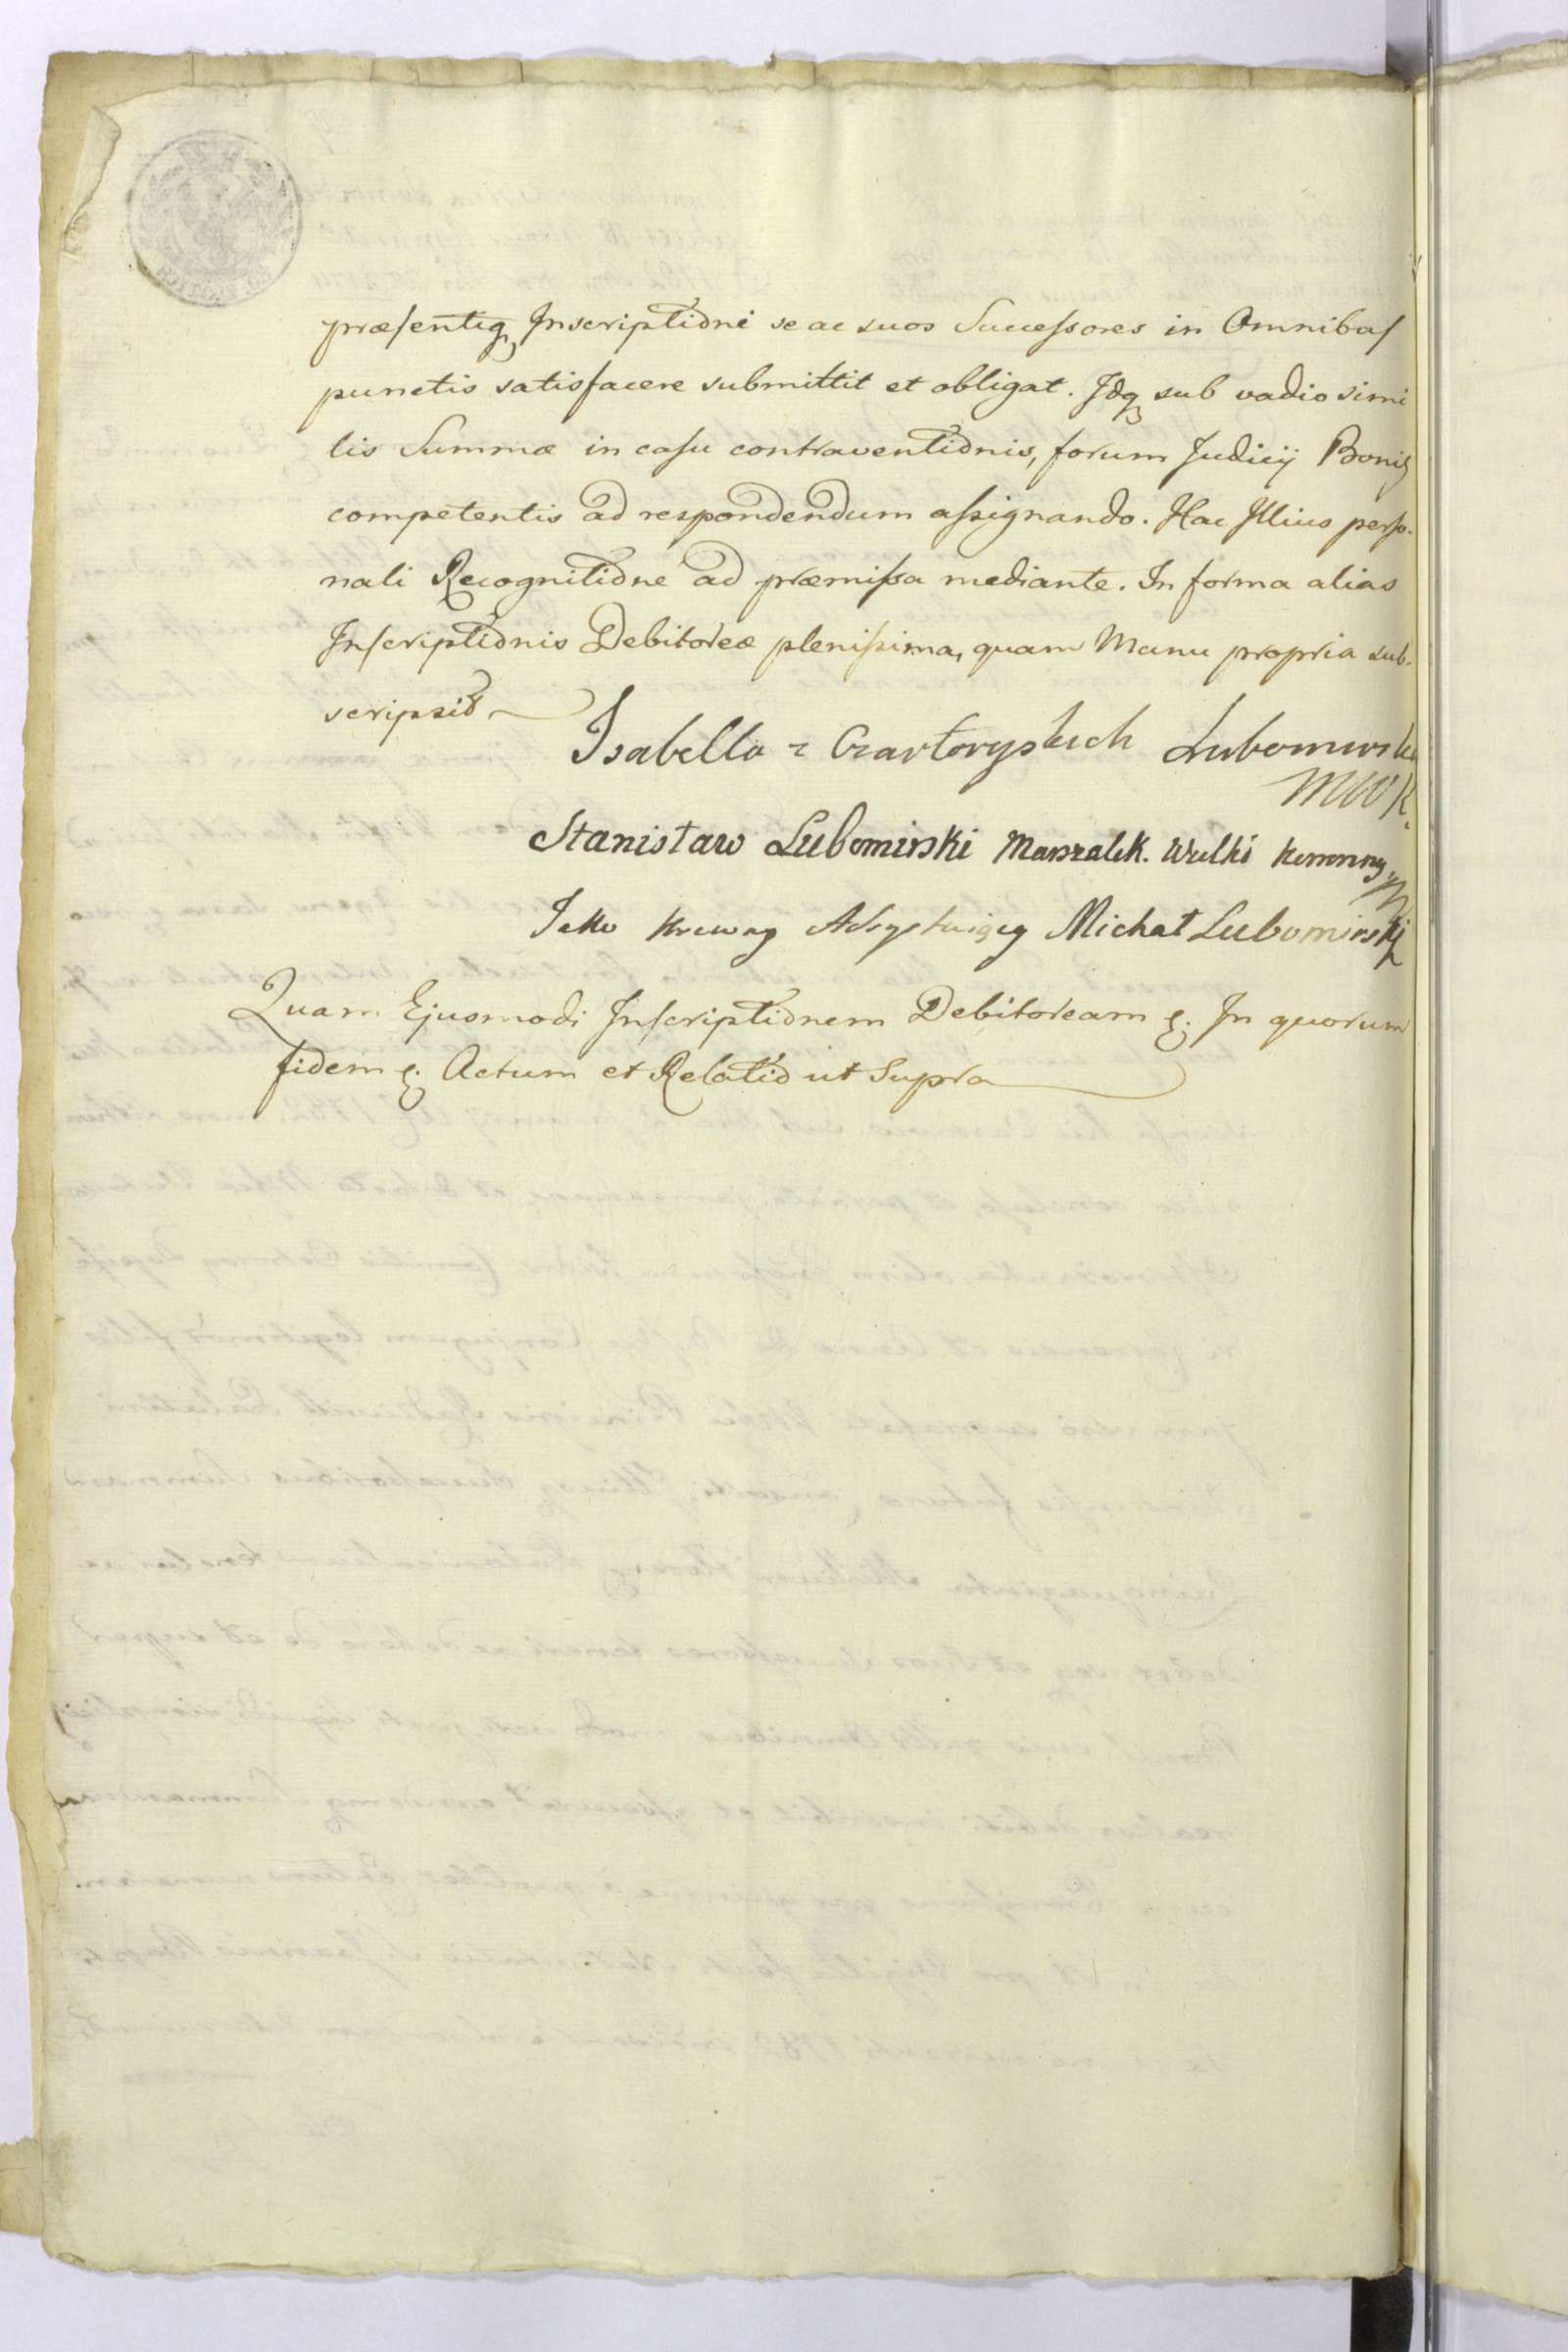 præsentiq₃ Inscriptioni se ac suos Successores in Omnibus
punctis satisfacere submittit et obligat. Idq₃ sub vadio simi
lis Summæ in casu contraventionis, forum Judicij Bonis
competentis ad respondendum assignando. Hac Illius perso.
nali Recognitione ad præmissa mediante. In forma alias
Inscriptionis Debitoreæ plenissima, quam Manu propria sub.
scripsit
Isabella z Czartoryskich Lubomirska
MWK.
Stanisław Lubomirski Marszałek. Wielki Koronny
Jako Krewny Assystuiący Michał Lubomirski
Quam Ejusmodi Inscriptionem Debitoream &. In quorum
fidem &. Actum et Relatio ut Supra